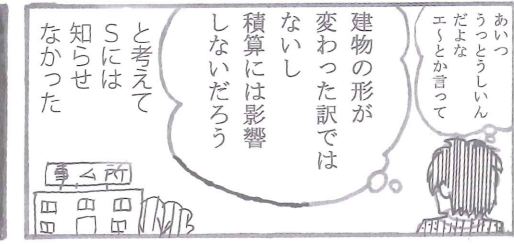 あいつ
うっとうしいん
だよな
エ～とか言って
建物の形が
変わった訳では
ないし
積算には影響
しないだろう
と考えて
Sには
知らせ
なかった
事ム所